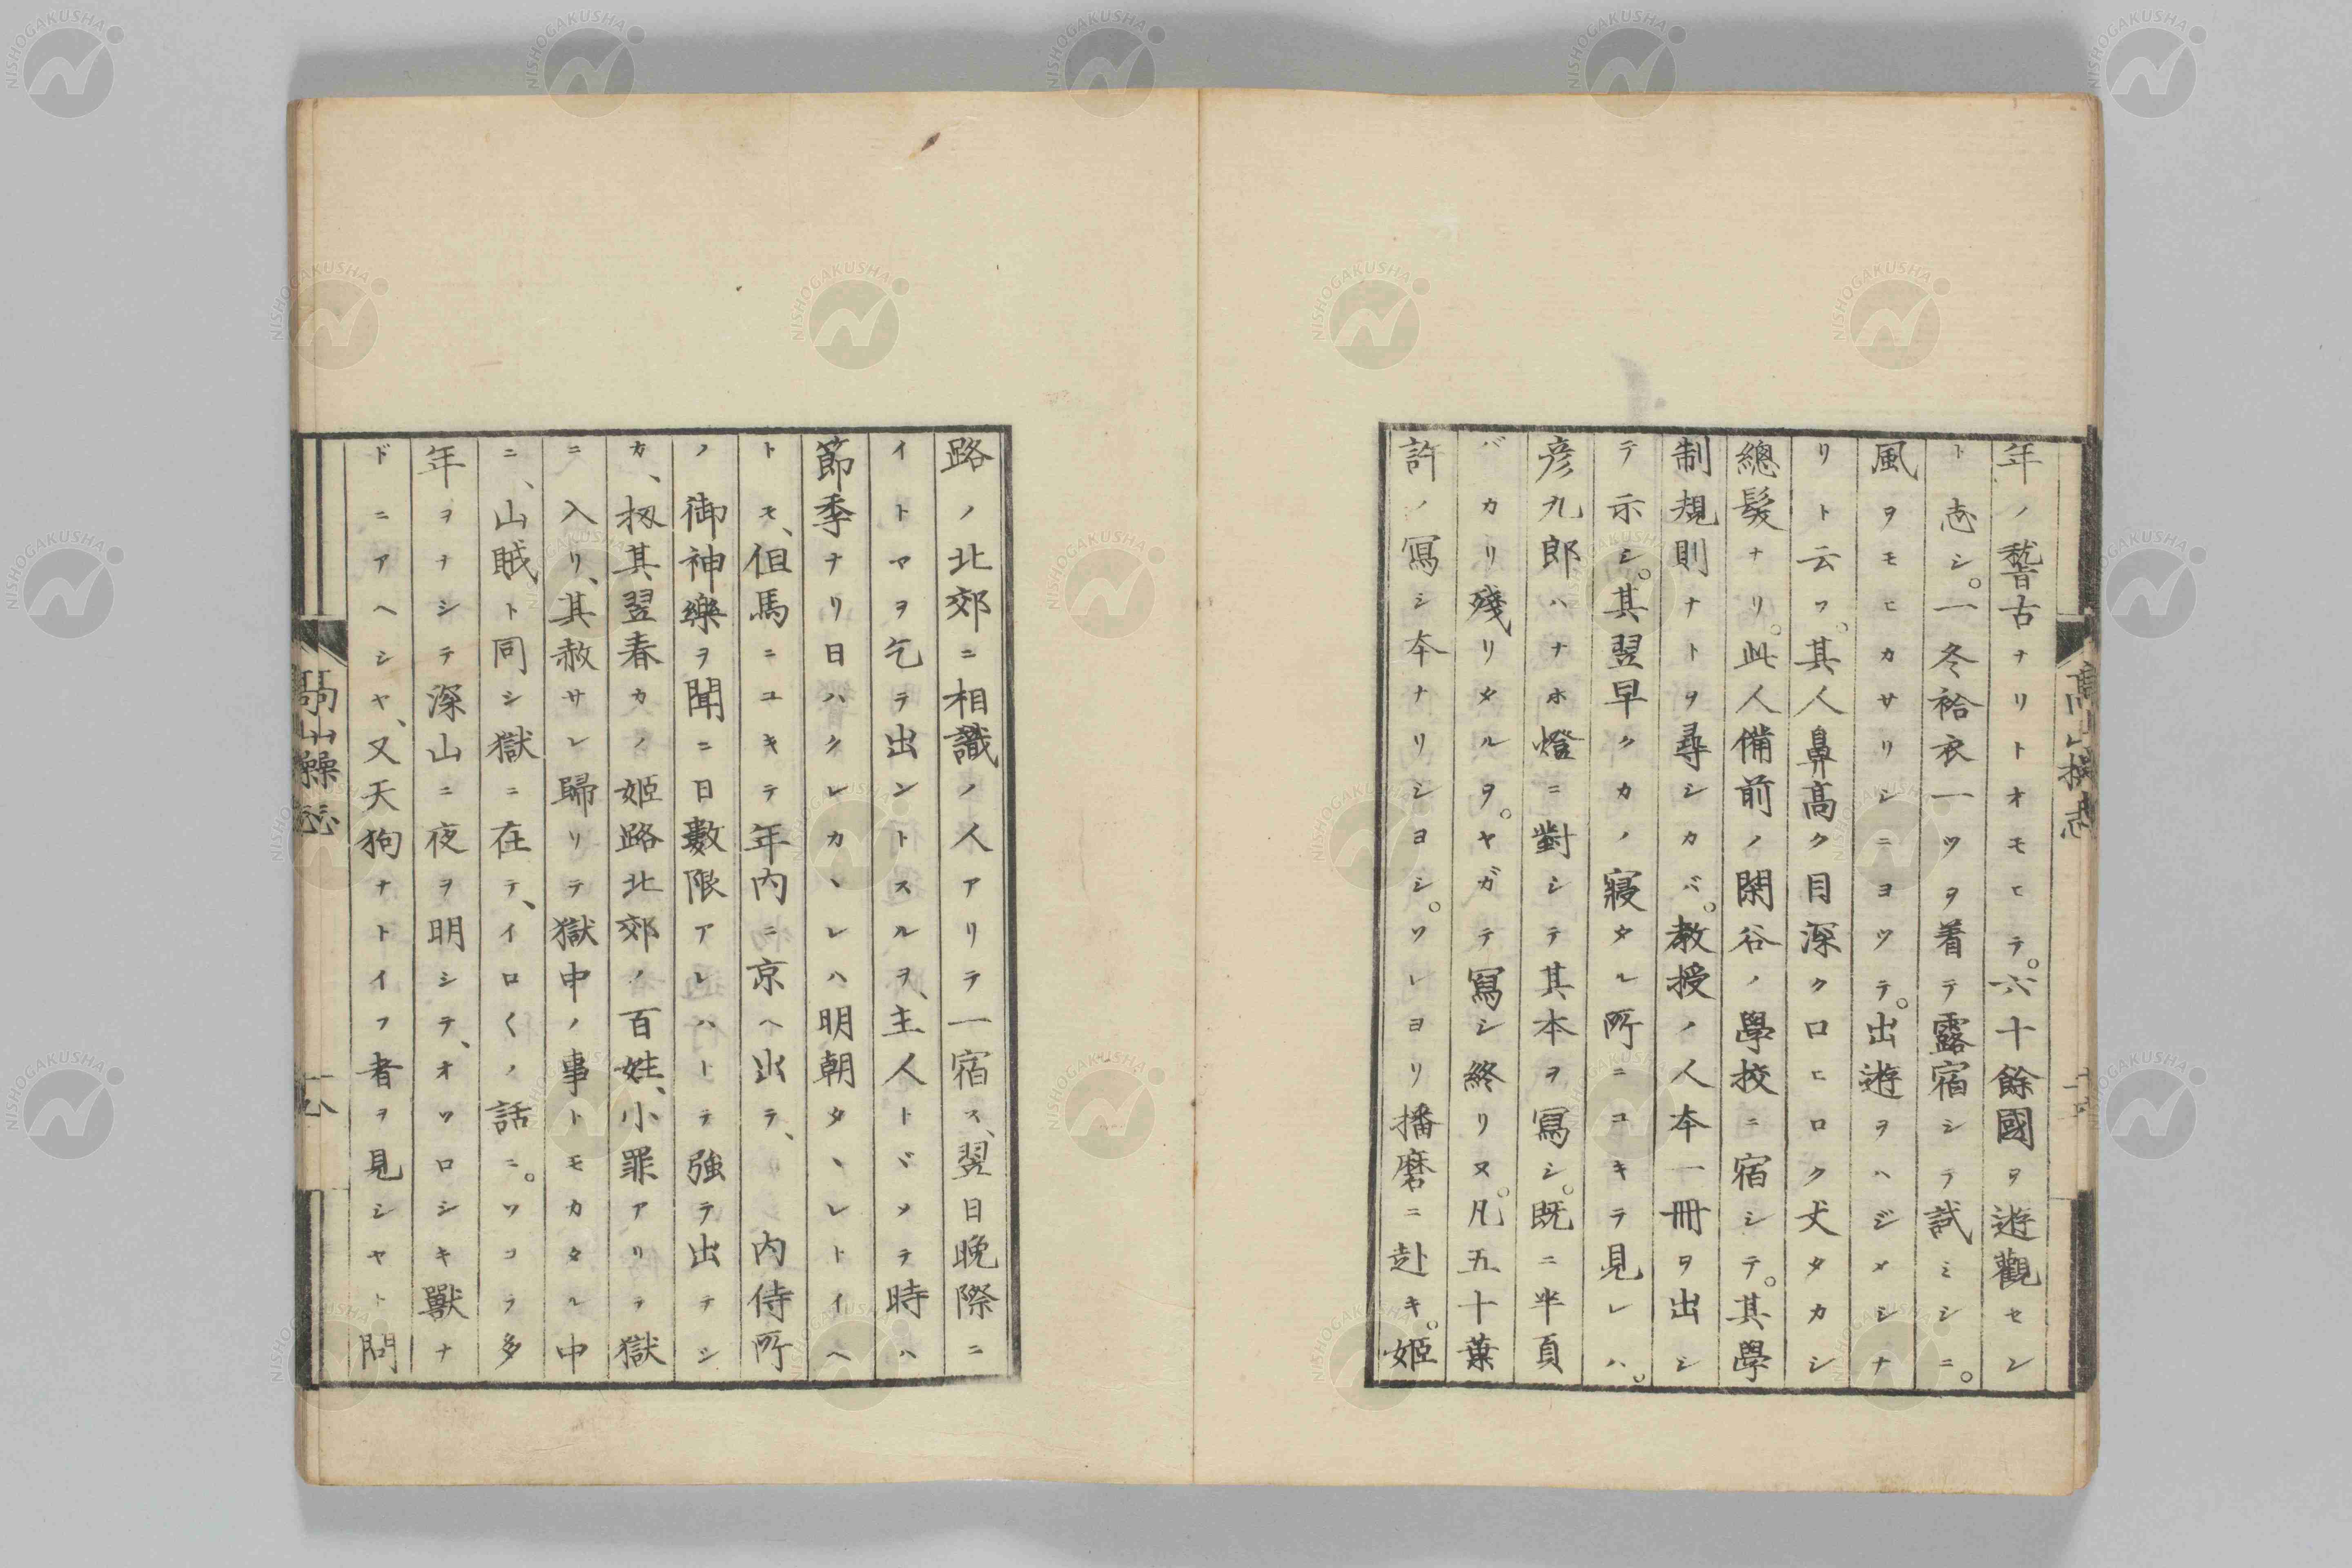 年ノ稽古ナリトオモヒテ。六十餘國ヲ遊觀セン
ト志シ。一冬袷衣一ツヲ着テ露宿シテ試ミシニ。
風ヲモヒカサリシニヨツテ。出遊ヲハジメシナ
リト云フ。其人鼻高ク目深ク口ヒロク丈タカシ
總髮ナリ。此人備前ノ閑谷ノ學校ニ宿シテ。其學
制規則ナトヲ尋シカバ。教授ノ人本一冊ヲ出シ
テ示シ。其翌早クカノ寢タル所ニユキテ見レハ。
彦九郎ハナホ燈ニ對シテ其本ヲ寫シ。既ニ半頁
バカリ殘リタルヲ。ヤガテ寫シ終リヌ。凡五十葉
許ノ寫シ本ナリシヨシ。ソレヨリ播磨ニ赴キ。姫
路ノ北郊ニ相識ノ人アリテ一宿ス、翌日晩際ニ
イトマヲ乞テ出ントスルヲ、主人トヾメテ時ハ
節季ナリ日ハクレカヽレハ明朝タヽレトイヘ
トモ、但馬ニユキテ年内ニ京ヘ出テ、内侍所
ノ御神樂ヲ聞ニ日數限アレハトテ強テ出テシ
カ、扨其翌春カノ姫路北郊ノ百姓、小罪アリテ獄
ニ入リ、其赦サレ歸リテ獄中ノ事トモカタル中
ニ、山賊ト同シ獄ニ在テ、イロ〱ノ話ニ。ソコラ多
年ヲナシテ深山ニ夜ヲ明シテ、オソロシキ獸ナ
ドニアヘシヤ、又天狗ナトイフ者ヲ見シヤト問
高山操志